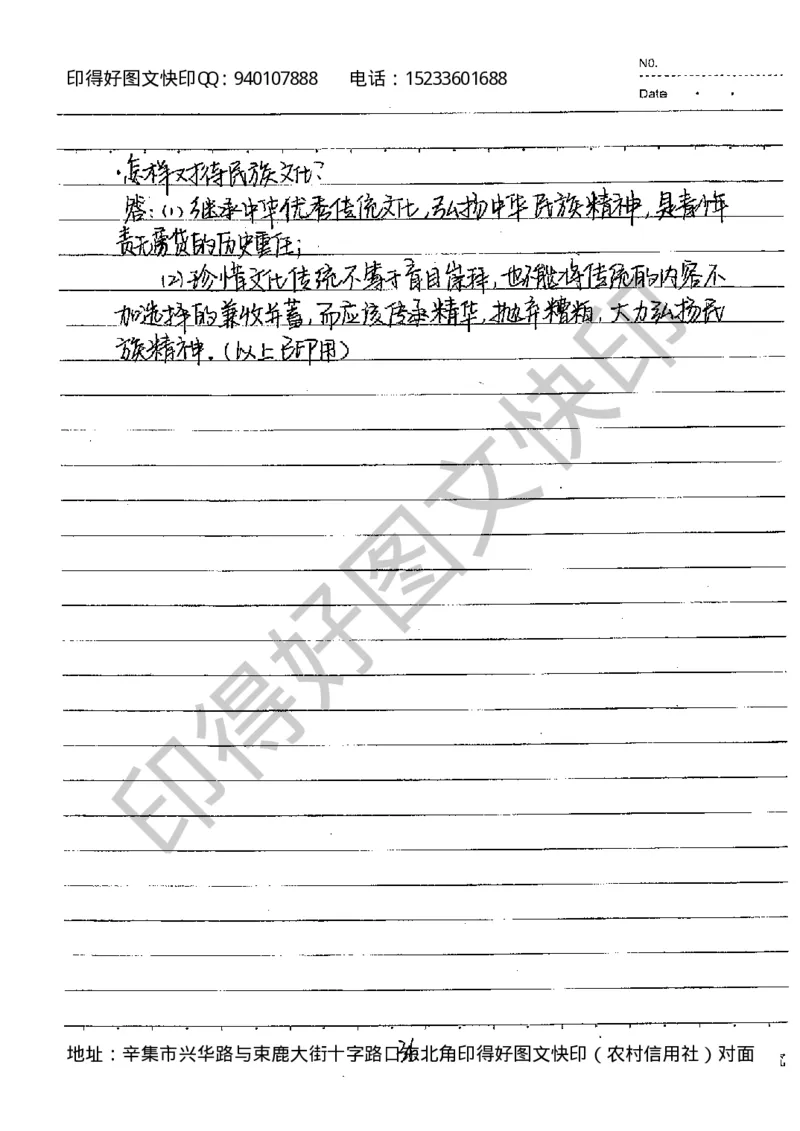 印得好图文快印QQ：940107888 电话：15233601688
NO.
Date
·怎样对待民族文化？
答：(1)继承中华优秀传统文化，弘扬中华民族精神，是青少年
责无旁贷的历史重任；
(2)珍惜文化传统不等于盲目崇拜，也不能将传统的内容不
加选择的兼收并蓄，而应该传承精华，抛弃糟粕，大力弘扬民
族精神。（以上已印用）
印得好图文快印
地址：辛集市兴华路与束鹿大街十字路口东北角印得好图文快印（农村信用社）对面